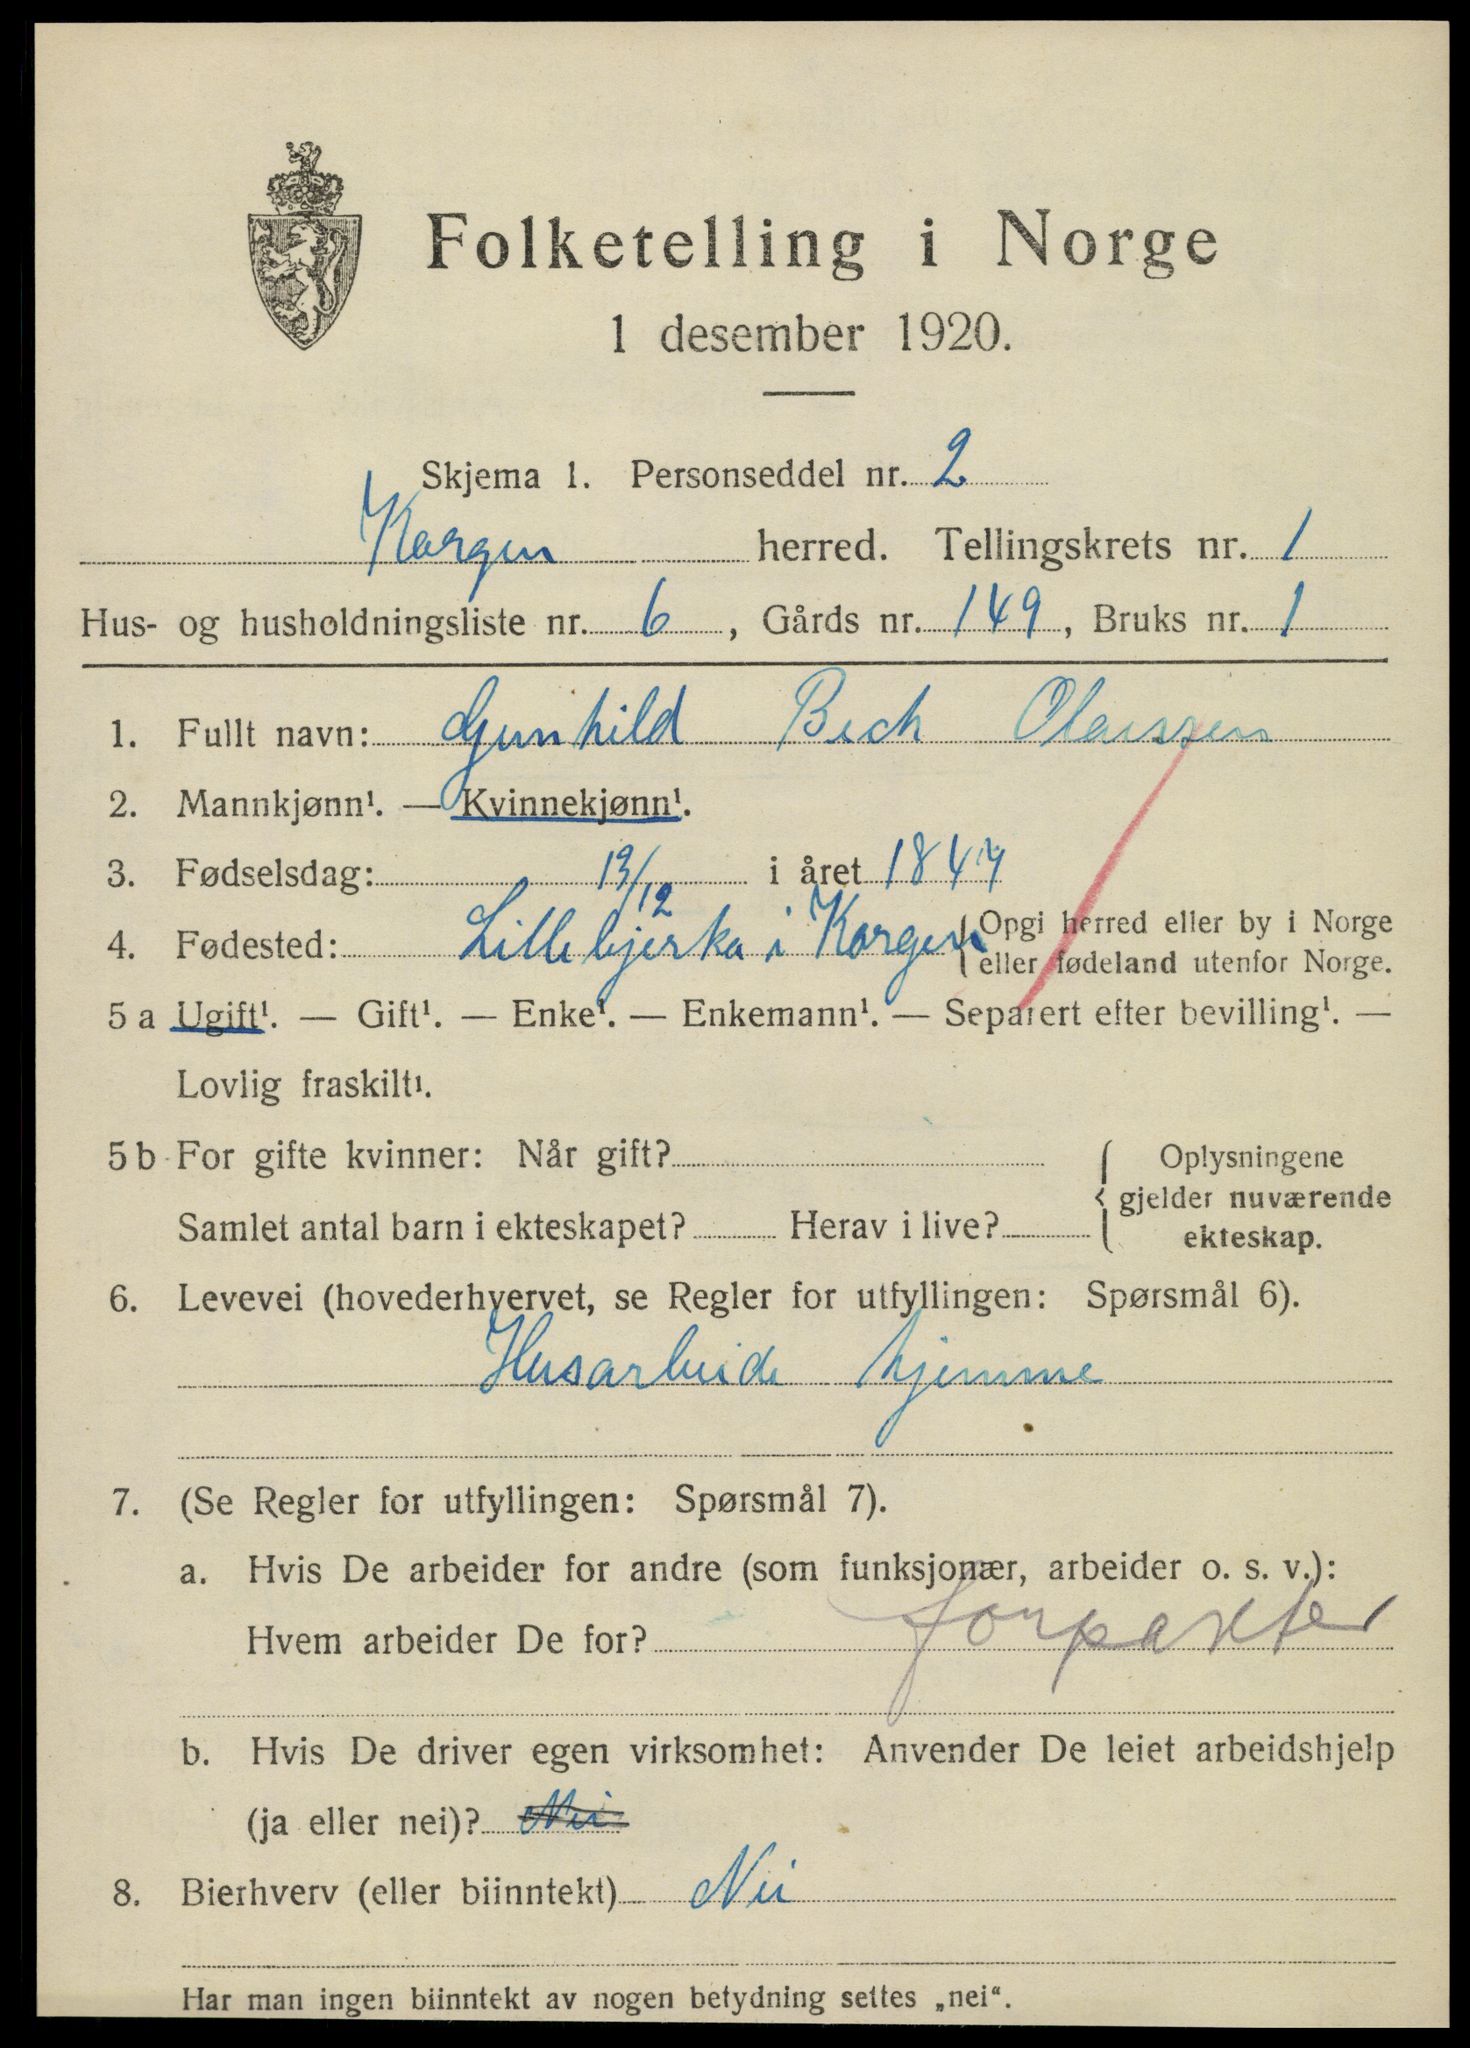 Folketelling i Norge
1 desember 1920.
Skjema 1. Personseddel nr. 2
Korgen herred. Tellingskrets nr. 1
Hus- og husholdningsliste nr. 6, Gårds nr. 149, Bruks nr. 1
1. Fullt navn: Gunhild Bech Olaissen
2. Mannkjønn¹. — Kvinnekjønn¹.
3. Fødselsdag: 19/12 i året 1847
4. Fødested: Lillebjerka i Korgen { Opgi herred eller by i Norge
eller fødeland utenfor Norge.
5 a Ugift¹. — Gift¹. — Enke¹. — Enkemann¹. — Separert efter bevilling¹. —
Lovlig fraskilt¹.
5 b For gifte kvinner: Når gift? { Oplysningene
gjelder nuværende
Samlet antal barn i ekteskapet? Herav i live? ekteskap.
6. Levevei (hovederhvervet, se Regler for utfyllingen: Spørsmål 6).
Husarbeide hjemme
7. (Se Regler for utfyllingen: Spørsmål 7).
a. Hvis De arbeider for andre (som funksjonær, arbeider o. s. v.):
Hvem arbeider De for? forpakter
b. Hvis De driver egen virksomhet: Anvender De leiet arbeidshjelp
(ja eller nei)? Nei
8. Bierhverv (eller biinntekt) Nei
Har man ingen biinntekt av nogen betydning settes „nei“.